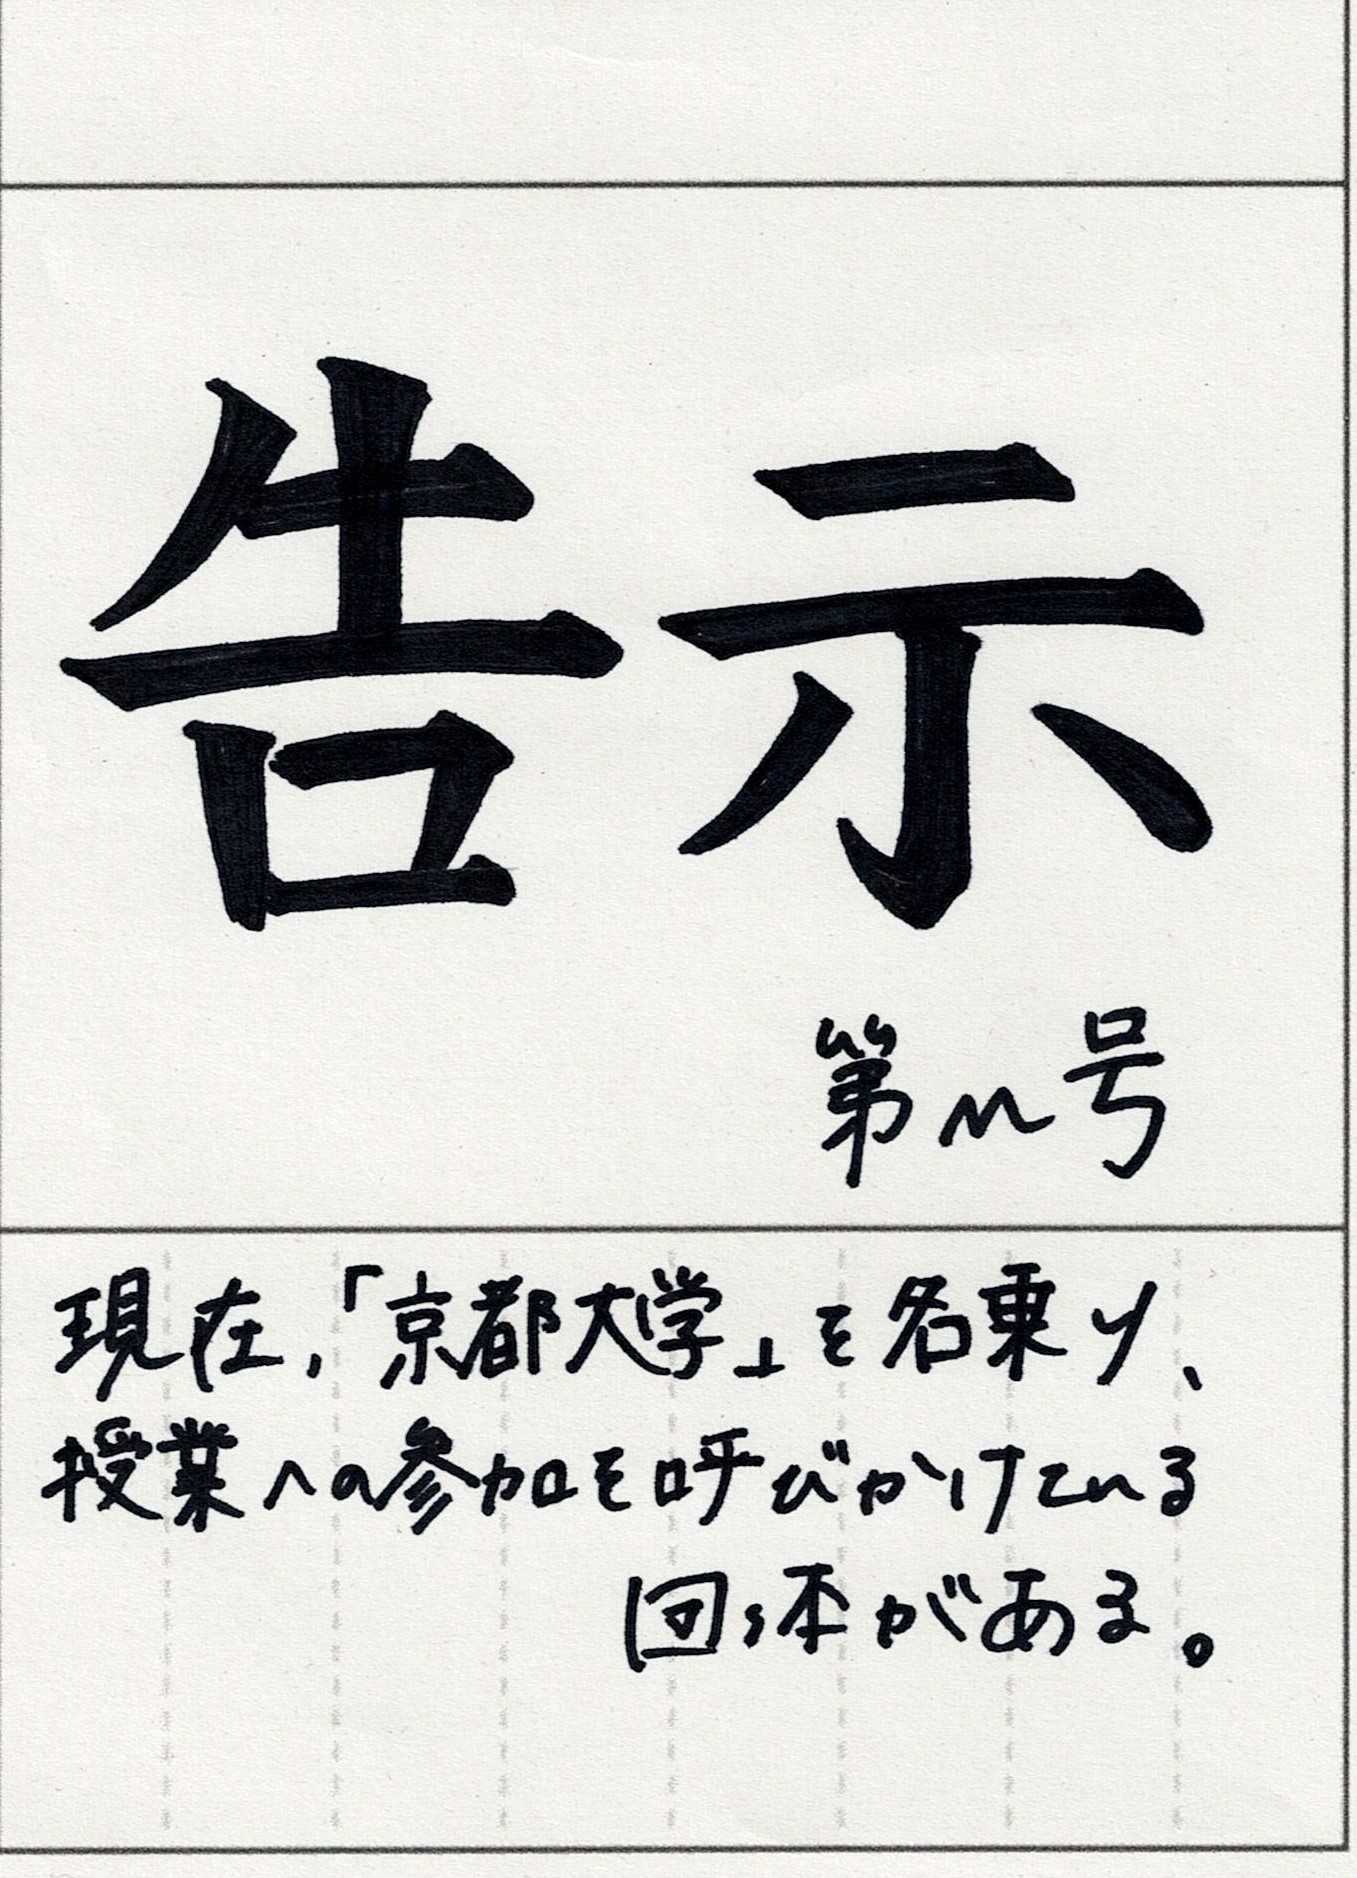 告示
第m号
現在,「京都大学」を名乗り、
授業への参加を呼びかけている
団体がある。